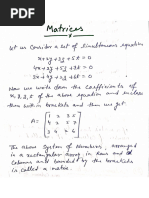 Matrices
Let us Consider a set of Simultaneous equation
x+2y+3z+5t=0
4x+2y+5z+7t=0
3x+4y+2z+6t=0
Now we write down the Coefficients of
x,y,z,t of the above equation and enclose
them with in brackets and then we get
A = [ 1 2 3 5
4 2 5 7
3 4 2 6 ]
The above System of Numbers, arranged
in a rectangular array in rows and
Columns and bounded by the brackets
is called a matrix.